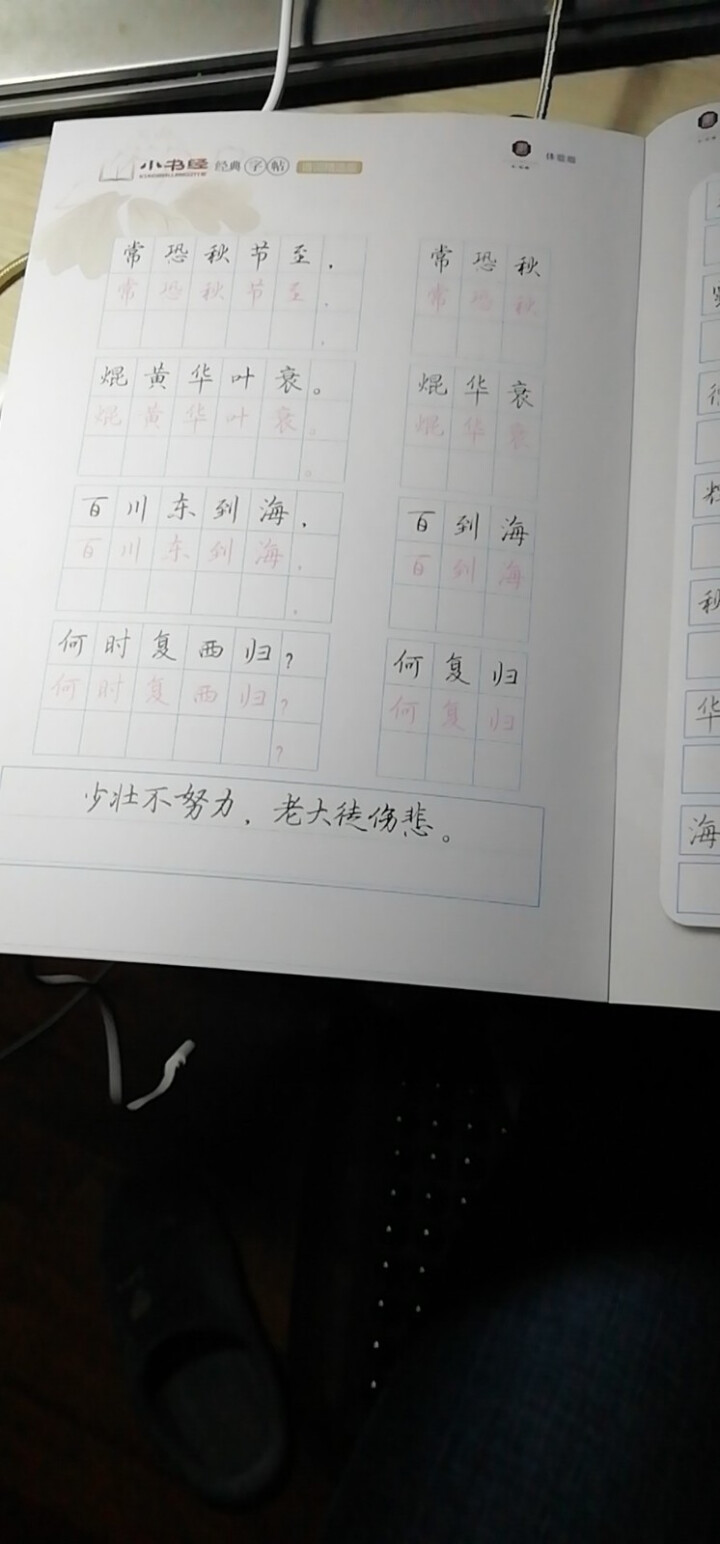 小书经 经典字帖
体验版
常恐秋节至，
常恐秋节至，
，
焜黄华叶衰。
焜黄华叶衰。
。
百川东到海，
百川东到海，
，
何时复西归？
何时复西归？
？
常恐秋
常恐秋
焜华衰
焜华衰
百到海
百到海
何复归
何复归
少壮不努力，老大徒伤悲。
秋
华
海